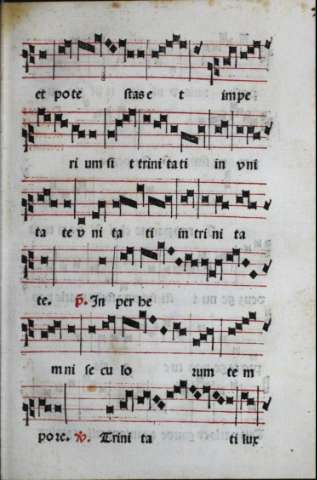 et pote stas e t impe
ri um si t trini ta ti in vni
ta te v ni ta ti in tri ni ta
te. p̃. In per he
mni se cu lo rum te m
pore. ṽ. Trini ta ti lux